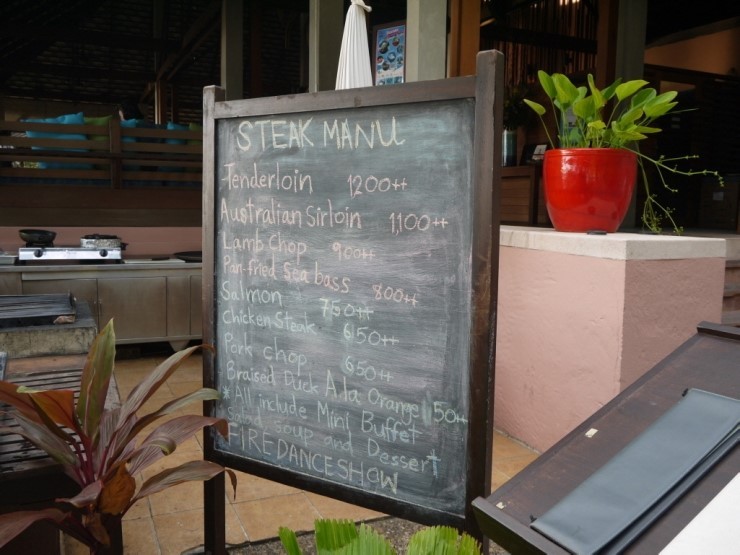 STEAK MANU
Tenderloin 1200++
Australian Sirloin 1,100++
Lamb Chop 900++
Pan-fried Sea bass 800++
Salmon 750++
Chicken Steak 650++
Pork chop 650++
Braised Duck A la Orange 1150++
* All include Mini Buffet
Salad, Soup and Dessert
*FIRE DANCE SHOW